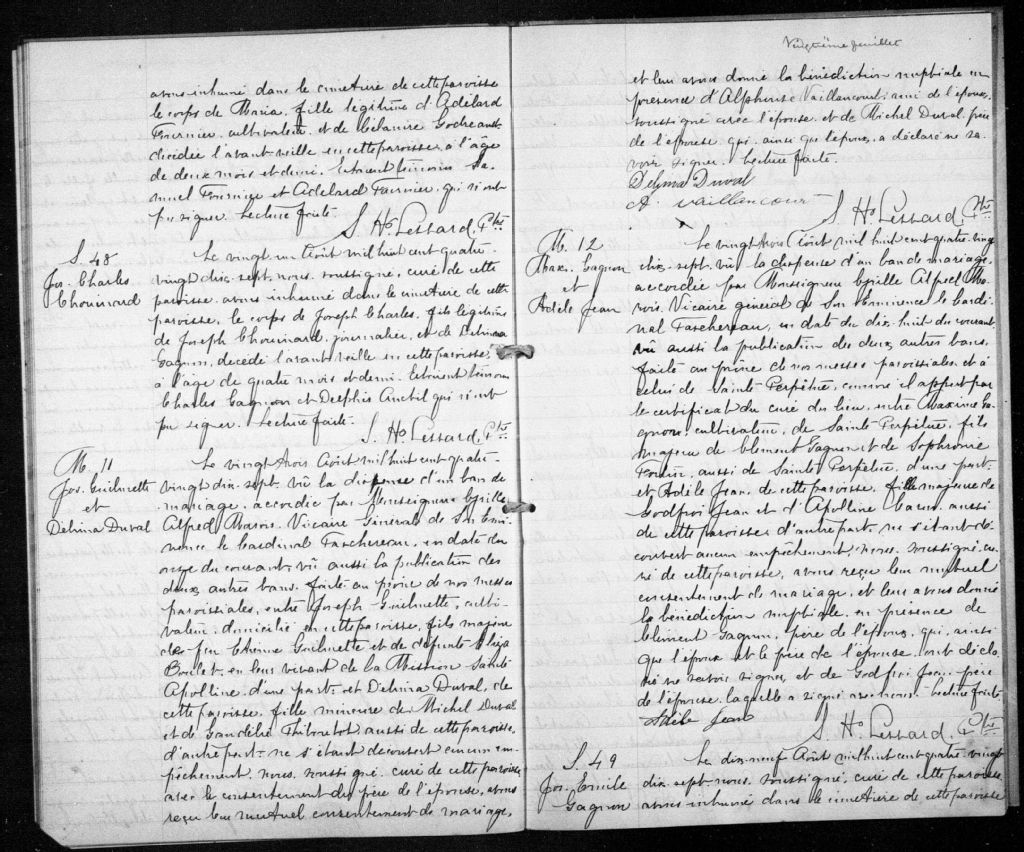 avons inhumé dans le cimetière de cette paroisse
le corps de Maria, fille légitime d'Adelard
Fournier, cultivateur, et de Mélanire Godreault
décédée l'avant-veille en cette paroisse, à l'âge
de deux mois et demi. Etaient témoins Sa-
muel Fournier et Adelard Fournier, qui n'ont
pu signer. Lecture faite.
S. Ho. Lessard, Ptre
S. 48
Jos. Charles
Chouinard
Le vingt un Août mil huit cent quatre
vingt dix-sept, nous, soussigné, curé de cette
paroisse, avons inhumé dans le cimetière de cette
paroisse, le corps de Joseph Charles, fils légitime
de Joseph Chouinard, journalier, et de
Gagnon, décédé l'avant veille en cette paroisse,
à l'âge de quatre mois et demi. Etaient témoins
Charles Gagnon et Delphis Anctil qui n'ont
pu signer. Lecture faite.
S. Ho. Lessard, Ptre
M. 11
Jos. Guilmette
et
Delvina Duval
Le vingt trois Août mil huit cent quatre-
vingt dix-sept, vû la dispense d'un ban de
mariage, accordée par Monseigneur Cyrille
Alfred Marois, Vicaire Général de Son Emi-
nence le Cardinal Taschereau, en date du
onze du courant, vû aussi la publication des
deux autres bans, faite au prône de nos messes
paroissiales, entre Joseph Guilmette, culti-
vateur, domicilié en cette paroisse, fils majeur
de feu Etienne Guilmette et de défunte
Boulet, en leur vivant de la Mission Sainte
Apolline, d'une part, et Delvina Duval, de
cette paroisse, fille mineure de Michel Duval
et de Sandélie Thibodot, aussi de cette paroisse,
d'autre part, ne s'étant découvert aucun em-
pêchement, nous, soussigné, curé de cette paroisse
avec le consentement du père de l'épouse, avons
reçu leur mutuel consentement de mariage,
Vingtième feuillet
et leur avons donné la bénédiction nuptiale en
présence d'Alphonse Vaillancourt, ami de l'époux,
soussigné avec l'épouse, et de Michel Duval, père
de l'épouse, qui, ainsi que l'époux, a déclaré ne sa-
voir signer. Lecture faite.
Delima Duval
A. Vaillancour
S. Ho. Lessard, Ptre
M. 12
Max. Gagnon
et
Adèle Jean
Le vingt trois Août mil huit cent quatre-vingt
dix-sept, vû la dispense d'un ban de mariage,
accordée par Monseigneur Cyrille Alfred Ma-
rois, Vicaire général de Son Eminence le Cardi-
nal Taschereau, en date du dix-huit du courant,
vû aussi la publication des deux autres bans,
faite au prône de nos messes paroissiales et à
celui de Sainte Perpétue, comme il appert par
le certificat du curé du lieu, entre Maxime Ga-
gnon, cultivateur, de Sainte Perpétue, fils
majeur de Clément Gagnon et de Sophronie
Fortin, aussi de Sainte Perpétue, d'une part,
et Adèle Jean, de cette paroisse, fille majeure de
Godfroi Jean et d'Apolline Caron, aussi
de cette paroisse d'autre part, ne s'étant dé-
couvert aucun empêchement, nous, soussigné, cu-
ré de cette paroisse, avons reçu leur mutuel
consentement de mariage, et leur avons donné
la bénédiction nuptiale, en présence de
Clément Gagnon, père de l'époux, qui, ainsi
que l'époux et le père de l'épouse, ont décla-
ré ne savoir signer, et de Godfroi Jean, père
de l'épouse, laquelle a signé avec nous. Lecture faite
Adèle Jean
S. Ho. Lessard, Ptre
S. 49
Jos. Emile
Gagnon
Le dix-neuf Août mil huit cent quatre-vingt
dix-sept, nous, soussigné, curé de cette paroisse,
avons inhumé dans le cimetière de cette paroisse